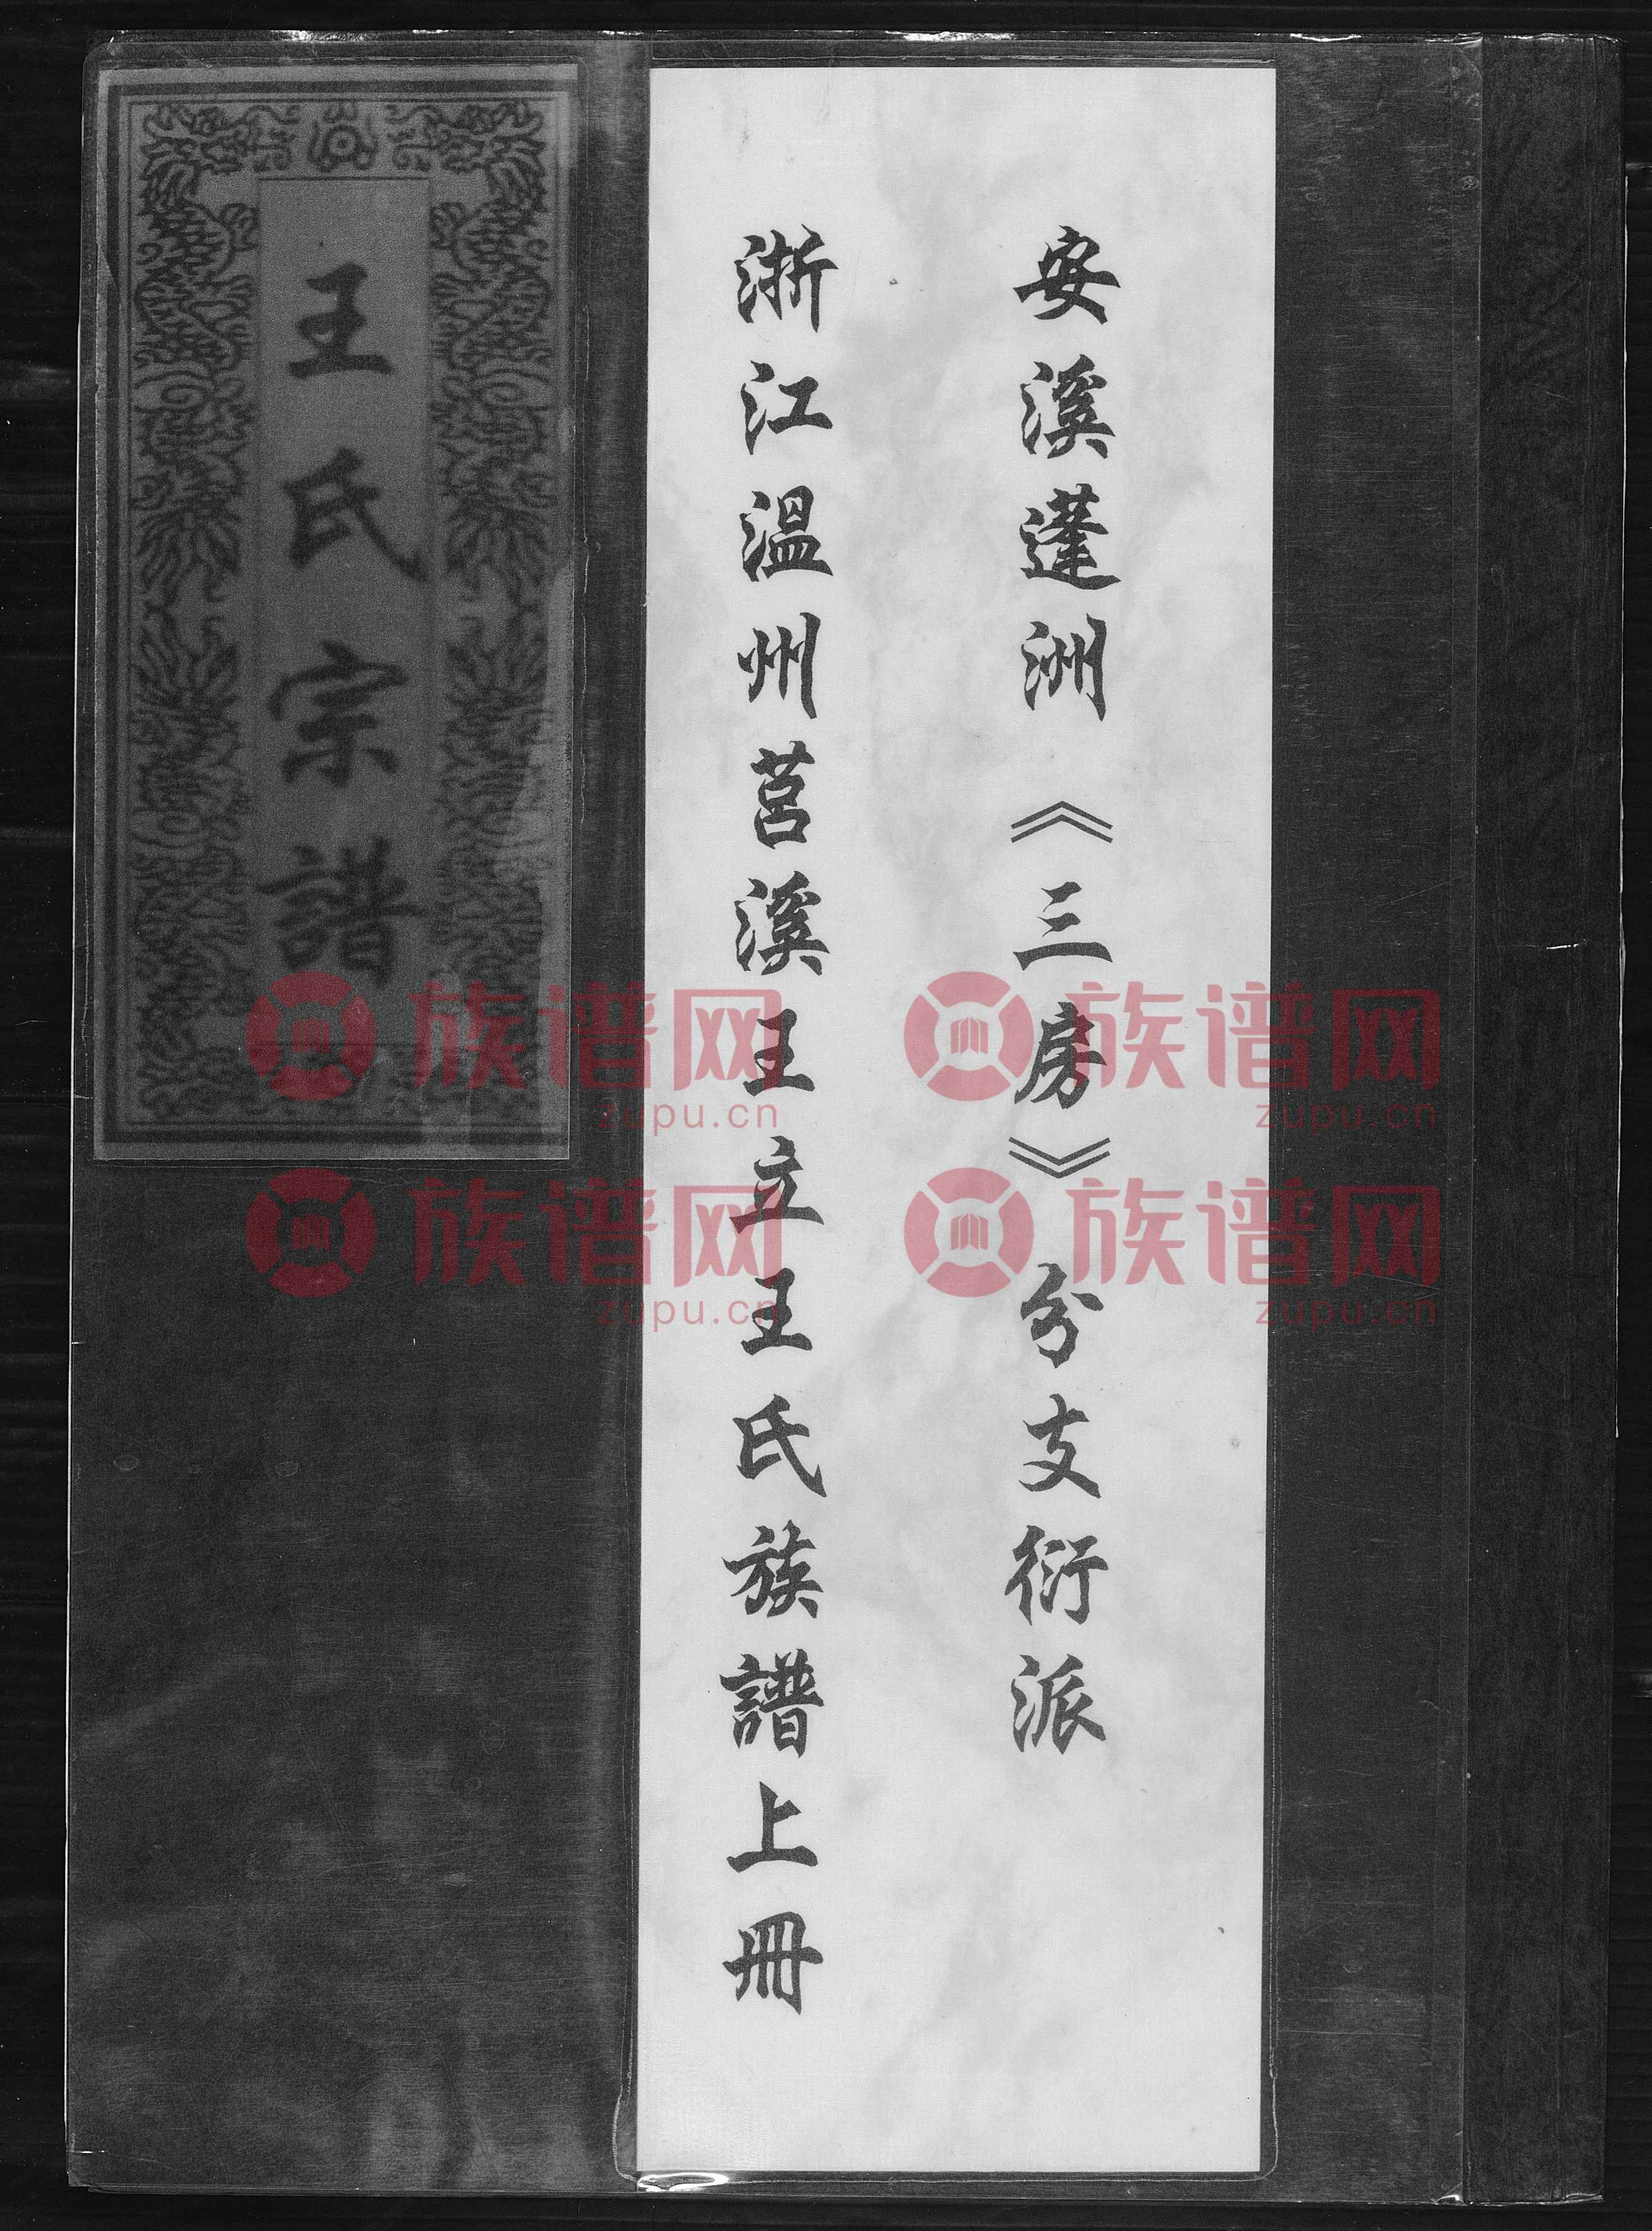 安溪蓬洲《三房》分支衍派
浙江溫州莒溪王立王氏族譜上冊
王氏宗譜
族谱网 族谱网
zupu.cn zupu.cn
族谱网 族谱网
zupu.cn zupu.cn